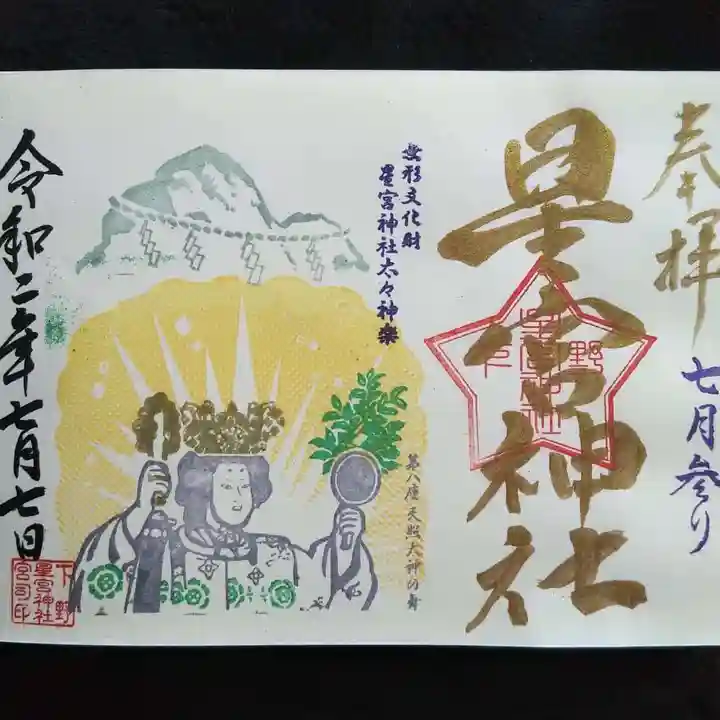 奉拝
七月参り
星宮神社
下野
星宮神社
無形文化財
星宮神社太々神楽
第八座 天照大神の舞
令和二年七月七日
下野
星宮神社
宮司印